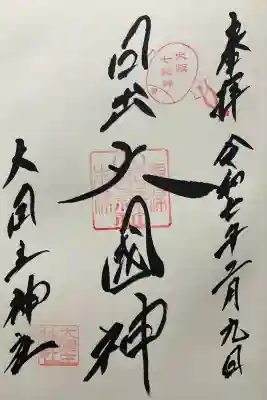 奉拝 令和七年二月九日
大阪
七福神
日出大國神
大国主神社
大國主神社